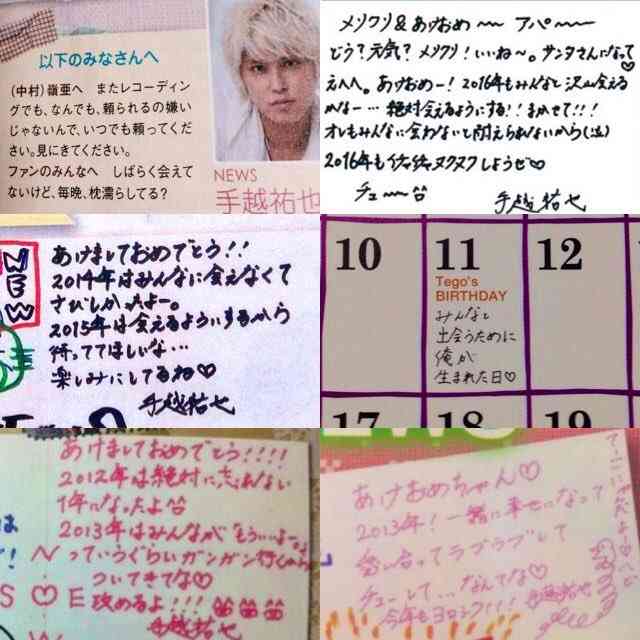 以下のみなさんへ
(中村)嶺亜へ　またレコーディン
グでも、なんでも、頼られるの嫌い
じゃないんで、いつでも頼ってくだ
さい。見にきてください。
ファンのみんなへ　しばらく会えて
ないけど、毎晩、枕濡らしてる?
NEWS
手越祐也
メリクリ&あけおめ〜〜 アパ〜〜
どう?元気?メリクリ!いいね〜。サンタさんになって♡
えへへ。あけおめー!2016年もみんなと沢山会える
かなー…絶対会えるようにする!!まかせて!!!
オレもみんなに会わないと耐えられないから(泣)
2016年もイチャイチャヌクヌクしようぜ♡
チュ〜
手越祐也
NEW
あけましておめでとう!!
2014年はみんなに会えなくて
さびしかったよー。
2015年は会えるようにするから
待っててほしいな…
楽しみにしてるね♡
手越祐也
10
11
12
Tego's
BIRTHDAY
みんなと
出会うために
俺が
生まれた日♡
17
18
19
あけましておめでとう!!!!
2012年は絶対に忘れない
1年になったよ
2013年はみんなが「もういいよー」
っていうぐらいガンガン行くから
ついてきてな♡
攻めるよ!!!
手越祐也
あけおめちゃん♡
2013年!一緒に幸せになって
愛し合ってラブラブして
チューして…なんてな♡
今年もヨロシク!!!
手越祐也